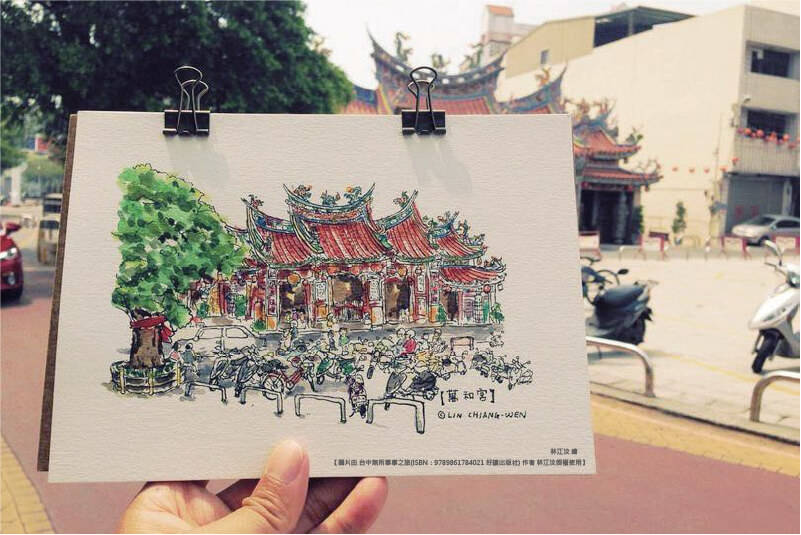 【萬和宮】
©LIN CHIANG-WEN
林江汶 繪
【圖片由 台中無所事事之旅(ISBN：9789861784021 好讀出版社) 作者 林江汶授權使用】